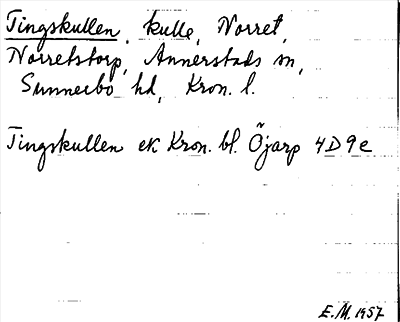 Tingskullen, kulle, Norret,
Norretstorp, Annerstads sn,
Sunnerbo hd, Kron. l.
Tingskullen ek Kron. bl. Öjarp 4D9e
E.M. 1957